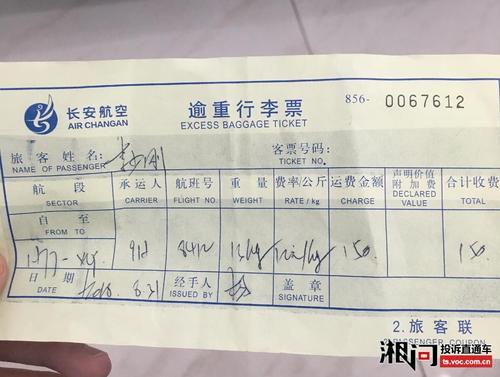 长安航空
AIR CHANGAN
逾重行李票
EXCESS BAGGAGE TICKET
856- 0067612
旅客姓名:
NAME OF PASSENGER
客票号码:
TICKET NO.
航段 承运人 航班号 重量 费率/公斤 运费金额 声明价值附加费 合计收费
SECTOR CARRIER FLIGHT NO. WEIGHT RATE / kg CHARGE DECLARED VALUE TOTAL
自 至
FROM TO
9H 8412 150 150
日期 8.31 经手人 盖章
DATE ISSUED BY SIGNATURE
2.旅客联
2.PASSENGER COUPON
湘问 投诉直通车
ts.voc.com.cn